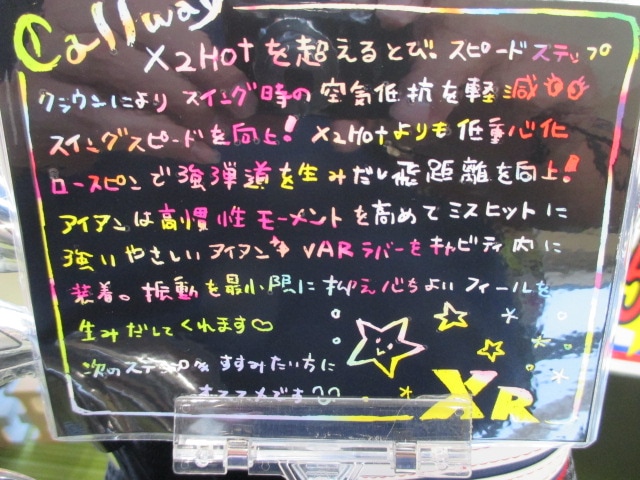 Callway
X2Hotを超えるとび。スピードステップ
クラウンにより スイング時の空気低抗を軽減
スイングスピードを向上! X2Hotよりも低重心化
ロースピンで強弾道を生みだし飛距離を向上!
アイアンは高慣性モーメントを高めてミスヒットに
強いやさしいアイアン VARラバーをキャビティ内に
装着。振動を最小限に抑え心ちよいフィールを
生みだしてくれます♡
次のステップへすすみたい方に
オススメです
XR